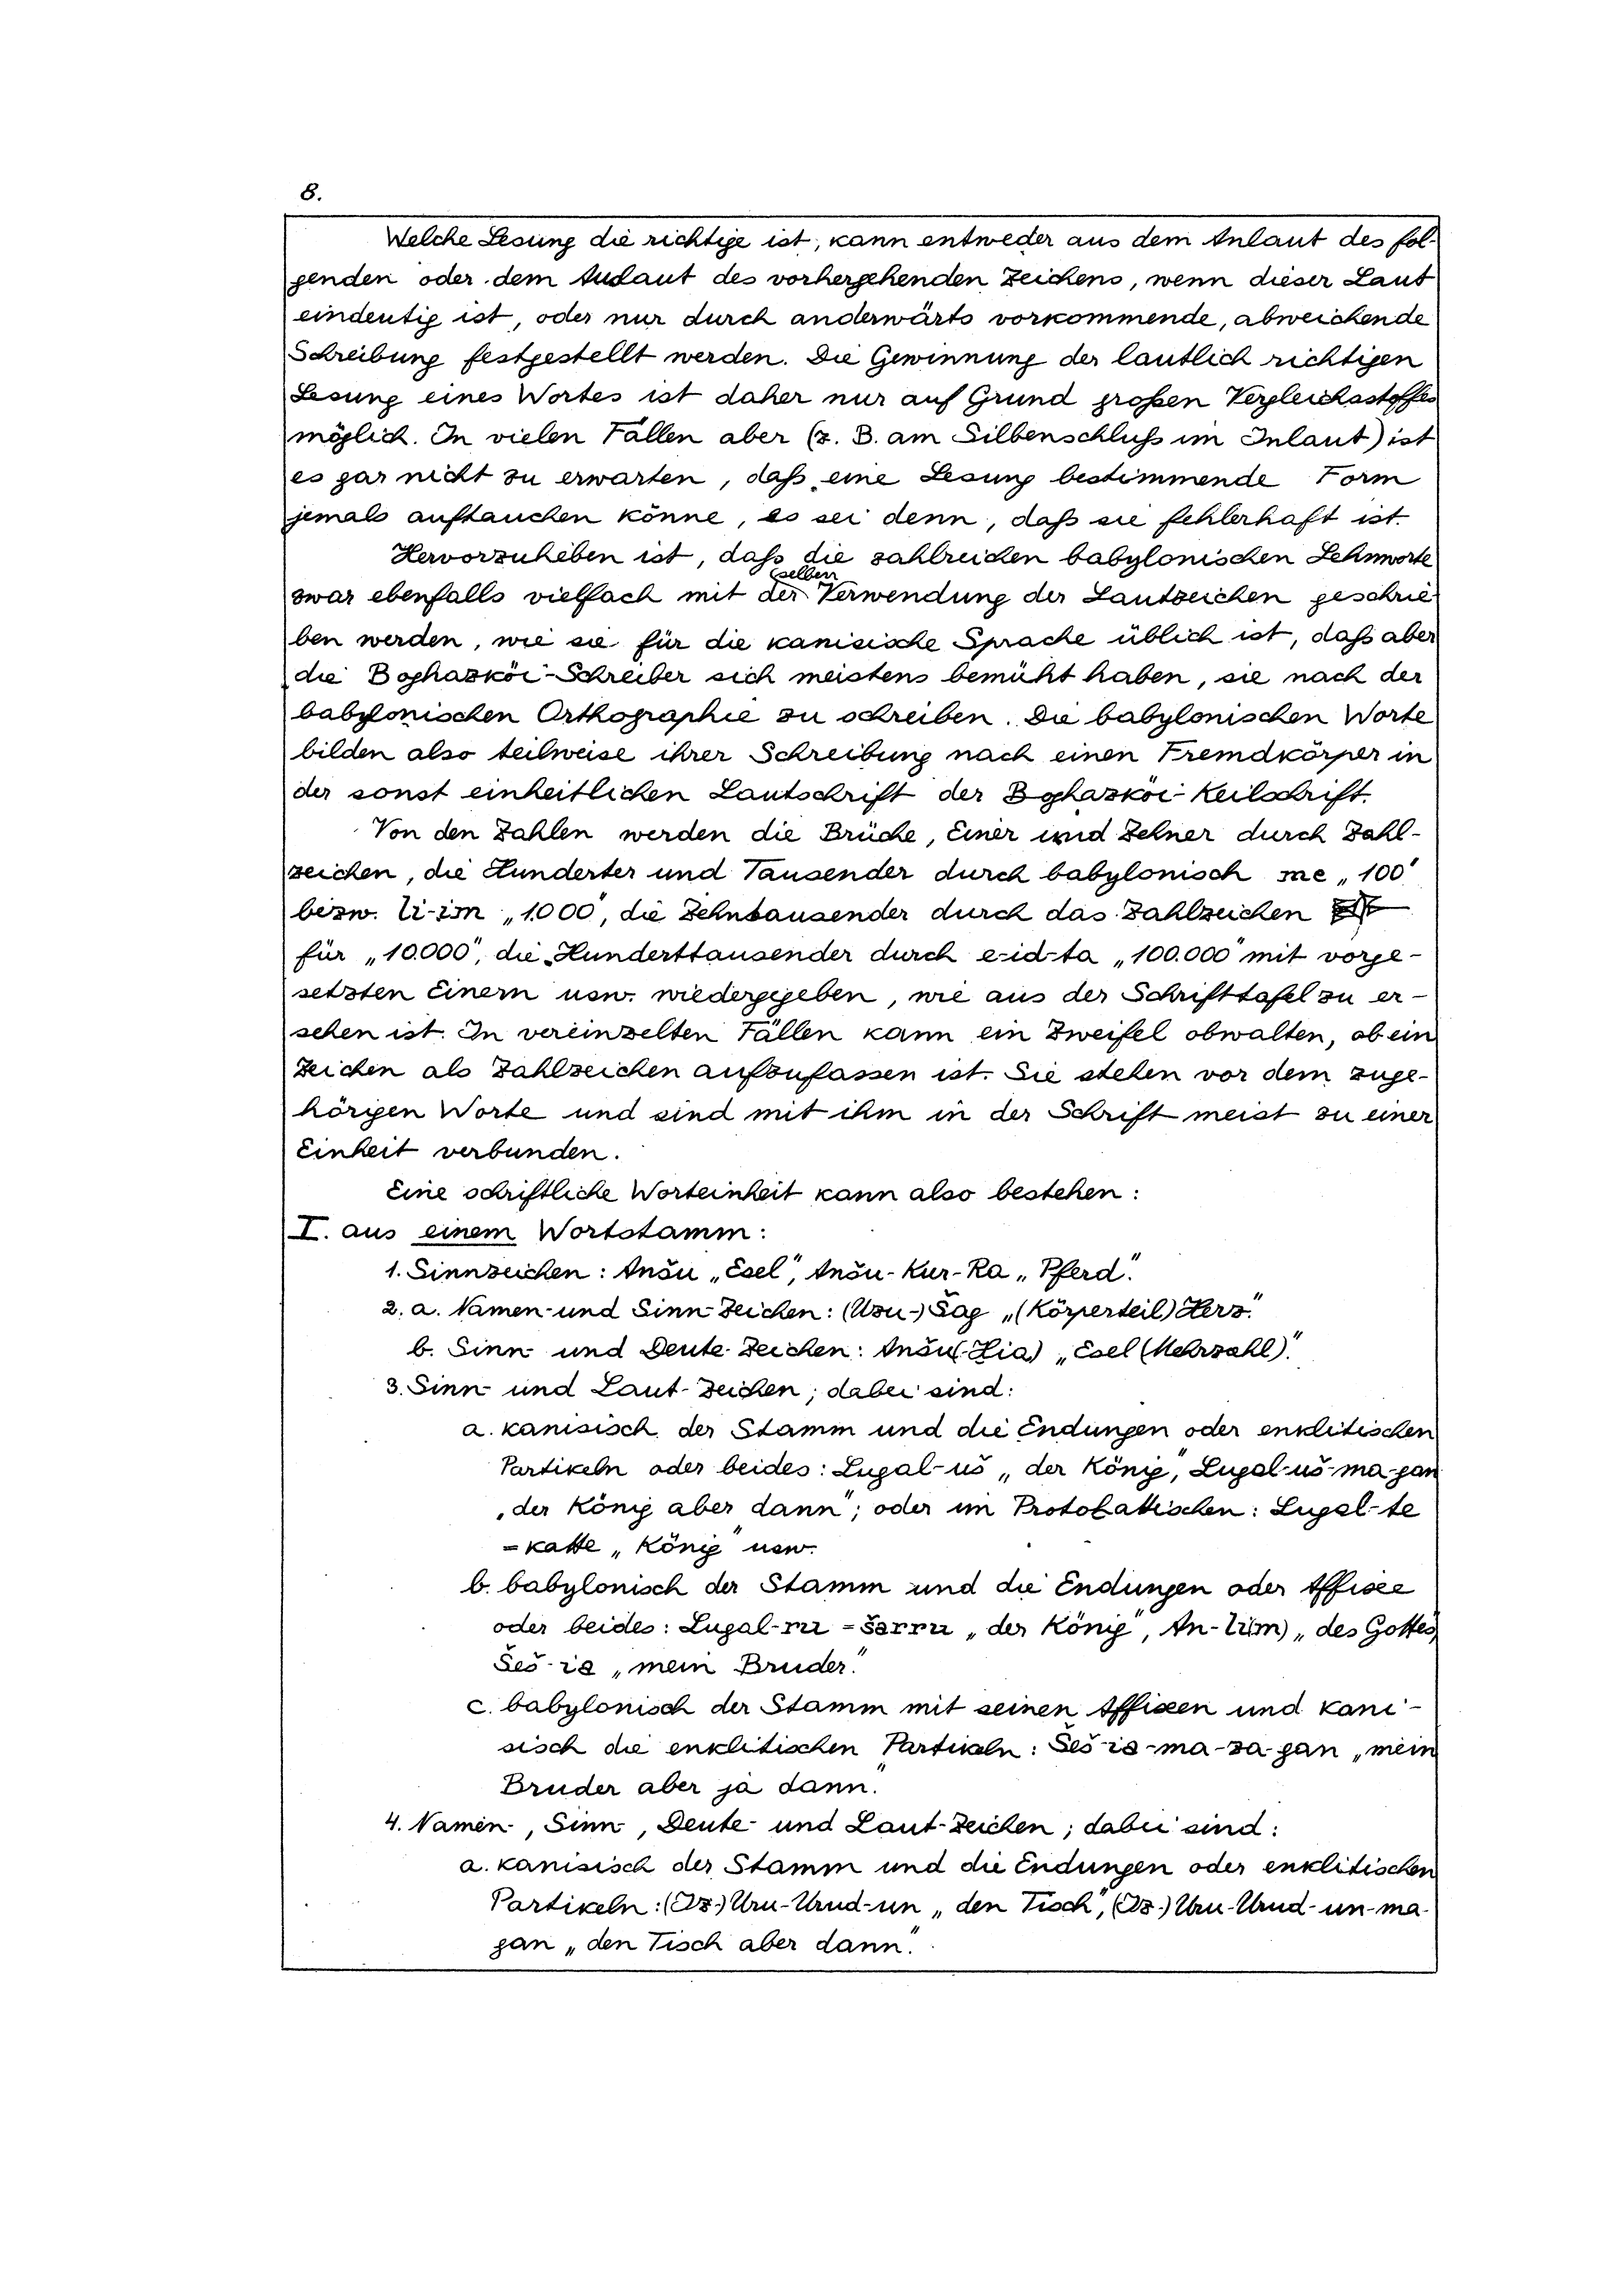 8.
Welche Lesung die richtige ist, kann entweder aus dem Anlaut des fol-
genden oder dem Auslaut des vorhergehenden Zeichens, wenn dieser Laut
eindeutig ist, oder nur durch anderwärts vorkommende, abweichende
Schreibung festgestellt werden. Die Gewinnung der lautlich richtigen
Lesung eines Wortes ist daher nur auf Grund großen Vergleichsstoffes
möglich. In vielen Fällen aber (z. B. am Silbenschluß im Inlaut) ist
es gar nicht zu erwarten, daß eine Lesung bestimmende Form
jemals auftauchen könne, es sei denn, daß sie fehlerhaft ist.
Hervorzuheben ist, daß die zahlreichen babylonischen Lehnworte
zwar ebenfalls vielfach mit derselben Verwendung der Lautzeichen geschrie-
ben werden, wie sie für die kanisische Sprache üblich ist, daß aber
die Boghazköi-Schreiber sich meistens bemüht haben, sie nach der
babylonischen Orthographie zu schreiben. Die babylonischen Worte
bilden also teilweise ihrer Schreibung nach einen Fremdkörper in
der sonst einheitlichen Lautschrift der Boghazköi-Keilschrift.
Von den Zahlen werden die Brüche, Einer und Zehner durch Zahl-
zeichen, die Hunderter und Tausender durch babylonisch me „100"
bezw. li-im „1000", die Zehntausender durch das Zahlzeichen
für „10.000", die Hunderttausender durch e-id-ta „100.000" mit vorge-
setzten Einern usw. wiedergegeben, wie aus der Schrifttafel zu er-
sehen ist. In vereinzelten Fällen kann ein Zweifel obwalten, ob ein
Zeichen als Zahlzeichen aufzufassen ist. Sie stehen vor dem zuge-
hörigen Worte und sind mit ihm in der Schrift meist zu einer
Einheit verbunden.
Eine schriftliche Worteinheit kann also bestehen:
I. aus einem Wortstamm:
1. Sinnzeichen: Anšu „Esel", Anšu-Kur-Ra „Pferd".
2. a. Namen- und Sinn-Zeichen: (Uzu-) Šag „(Körperteil) Herz."
b. Sinn- und Deute-Zeichen: Anšu(-Zia) „Esel (Mehrzahl)."
3. Sinn- und Laut-Zeichen; dabei sind:
a. kanisisch der Stamm und die Endungen oder enklitischen
Partikeln oder beides: Lugal-uš „der König", Lugal-uš-ma-gan
„der König aber dann"; oder im Protohattischen: Lugal-te
=katte „König" usw.
b. babylonisch der Stamm und die Endungen oder Affixe
oder beides: Lugal-ru = šarru „der König", An-lim) „des Gottes",
Šeš-ia „mein Bruder."
c. babylonisch der Stamm mit seinen Affixen und kani-
sisch die enklitischen Partikeln: Šeš-ia-ma-za-gan „mein
Bruder aber ja dann."
4. Namen-, Sinn-, Deute- und Laut-Zeichen; dabei sind:
a. kanisisch der Stamm und die Endungen oder enklitischen
Partikeln: (Iz-) Uru-Urud-un „den Tisch", (Iz-) Uru-Urud-un-ma-
gan „den Tisch aber dann".